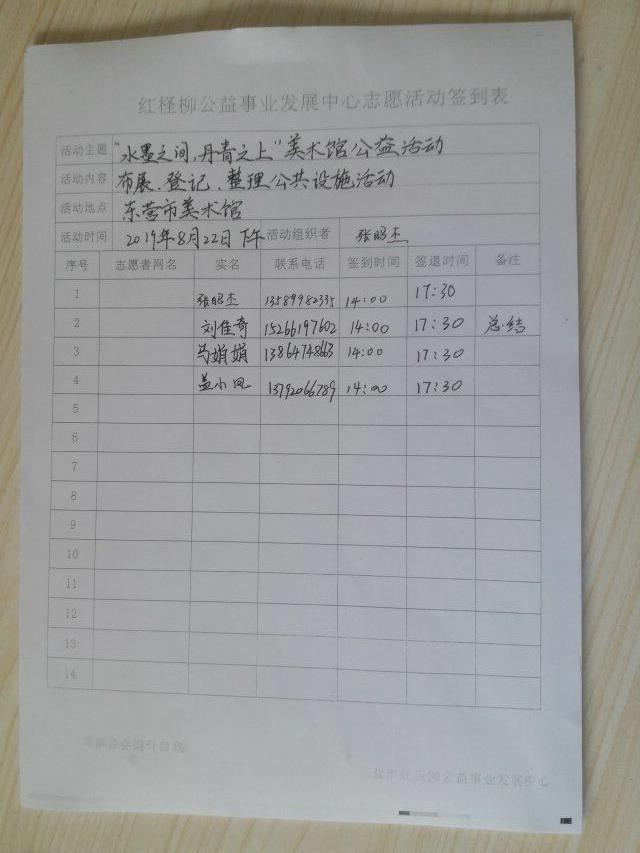 红柽柳公益事业发展中心志愿活动签到表
活动主题 “水墨之间,丹青之上”美术馆公益活动
活动内容 布展、登记、整理公共设施活动
活动地点 东营市美术馆
活动时间 2019年8月22日下午 活动组织者 张昭杰
序号 志愿者网名 实名 联系电话 签到时间 签退时间 备注
1 张昭杰 13589982335 14:00 17:30
2 刘佳奇 15266197602 14:00 17:30 总结
3 马娟娟 13864748663 14:00 17:30
4 盖小凤 13792066789 14:00 17:30
5
6
7
8
9
10
11
12
13
14